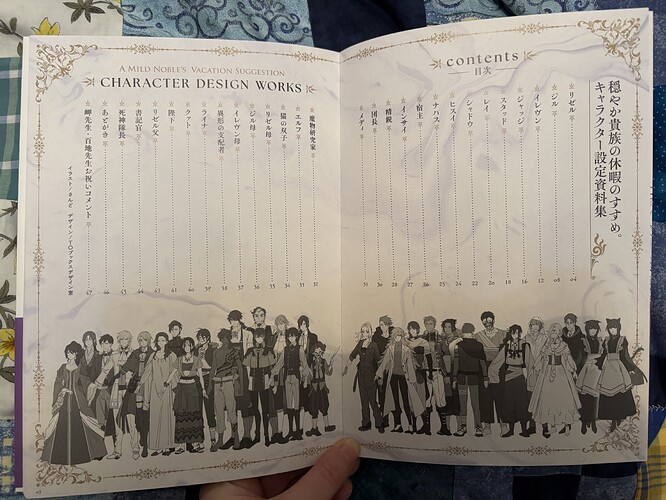 contents
目次
穏やか貴族の休暇のすすめ。
キャラクター設定資料集
リゼル 04
ジル 08
イレヴン 12
ジャッジ 16
スタッド 18
レイ 20
シャドウ 22
ヒスイ 24
ナハス 25
宿主 26
インサイ 27
精鋭 28
団長 30
メディ 31
A MILD NOBLE'S VACATION SUGGESTION
CHARACTER DESIGN WORKS
魔物研究家 32
エルフ 33
猫の双子 34
リゼル母 35
ジル母 36
イレヴン母 37
異形の支配者 38
ライナ 39
クァト 40
陛下 41
リゼル父 43
書記官 44
死神隊長 45
あとがき 46
岬先生・百地先生お祝いコメント 47
イラスト/さんど デザイン/TOブックスデザイン室